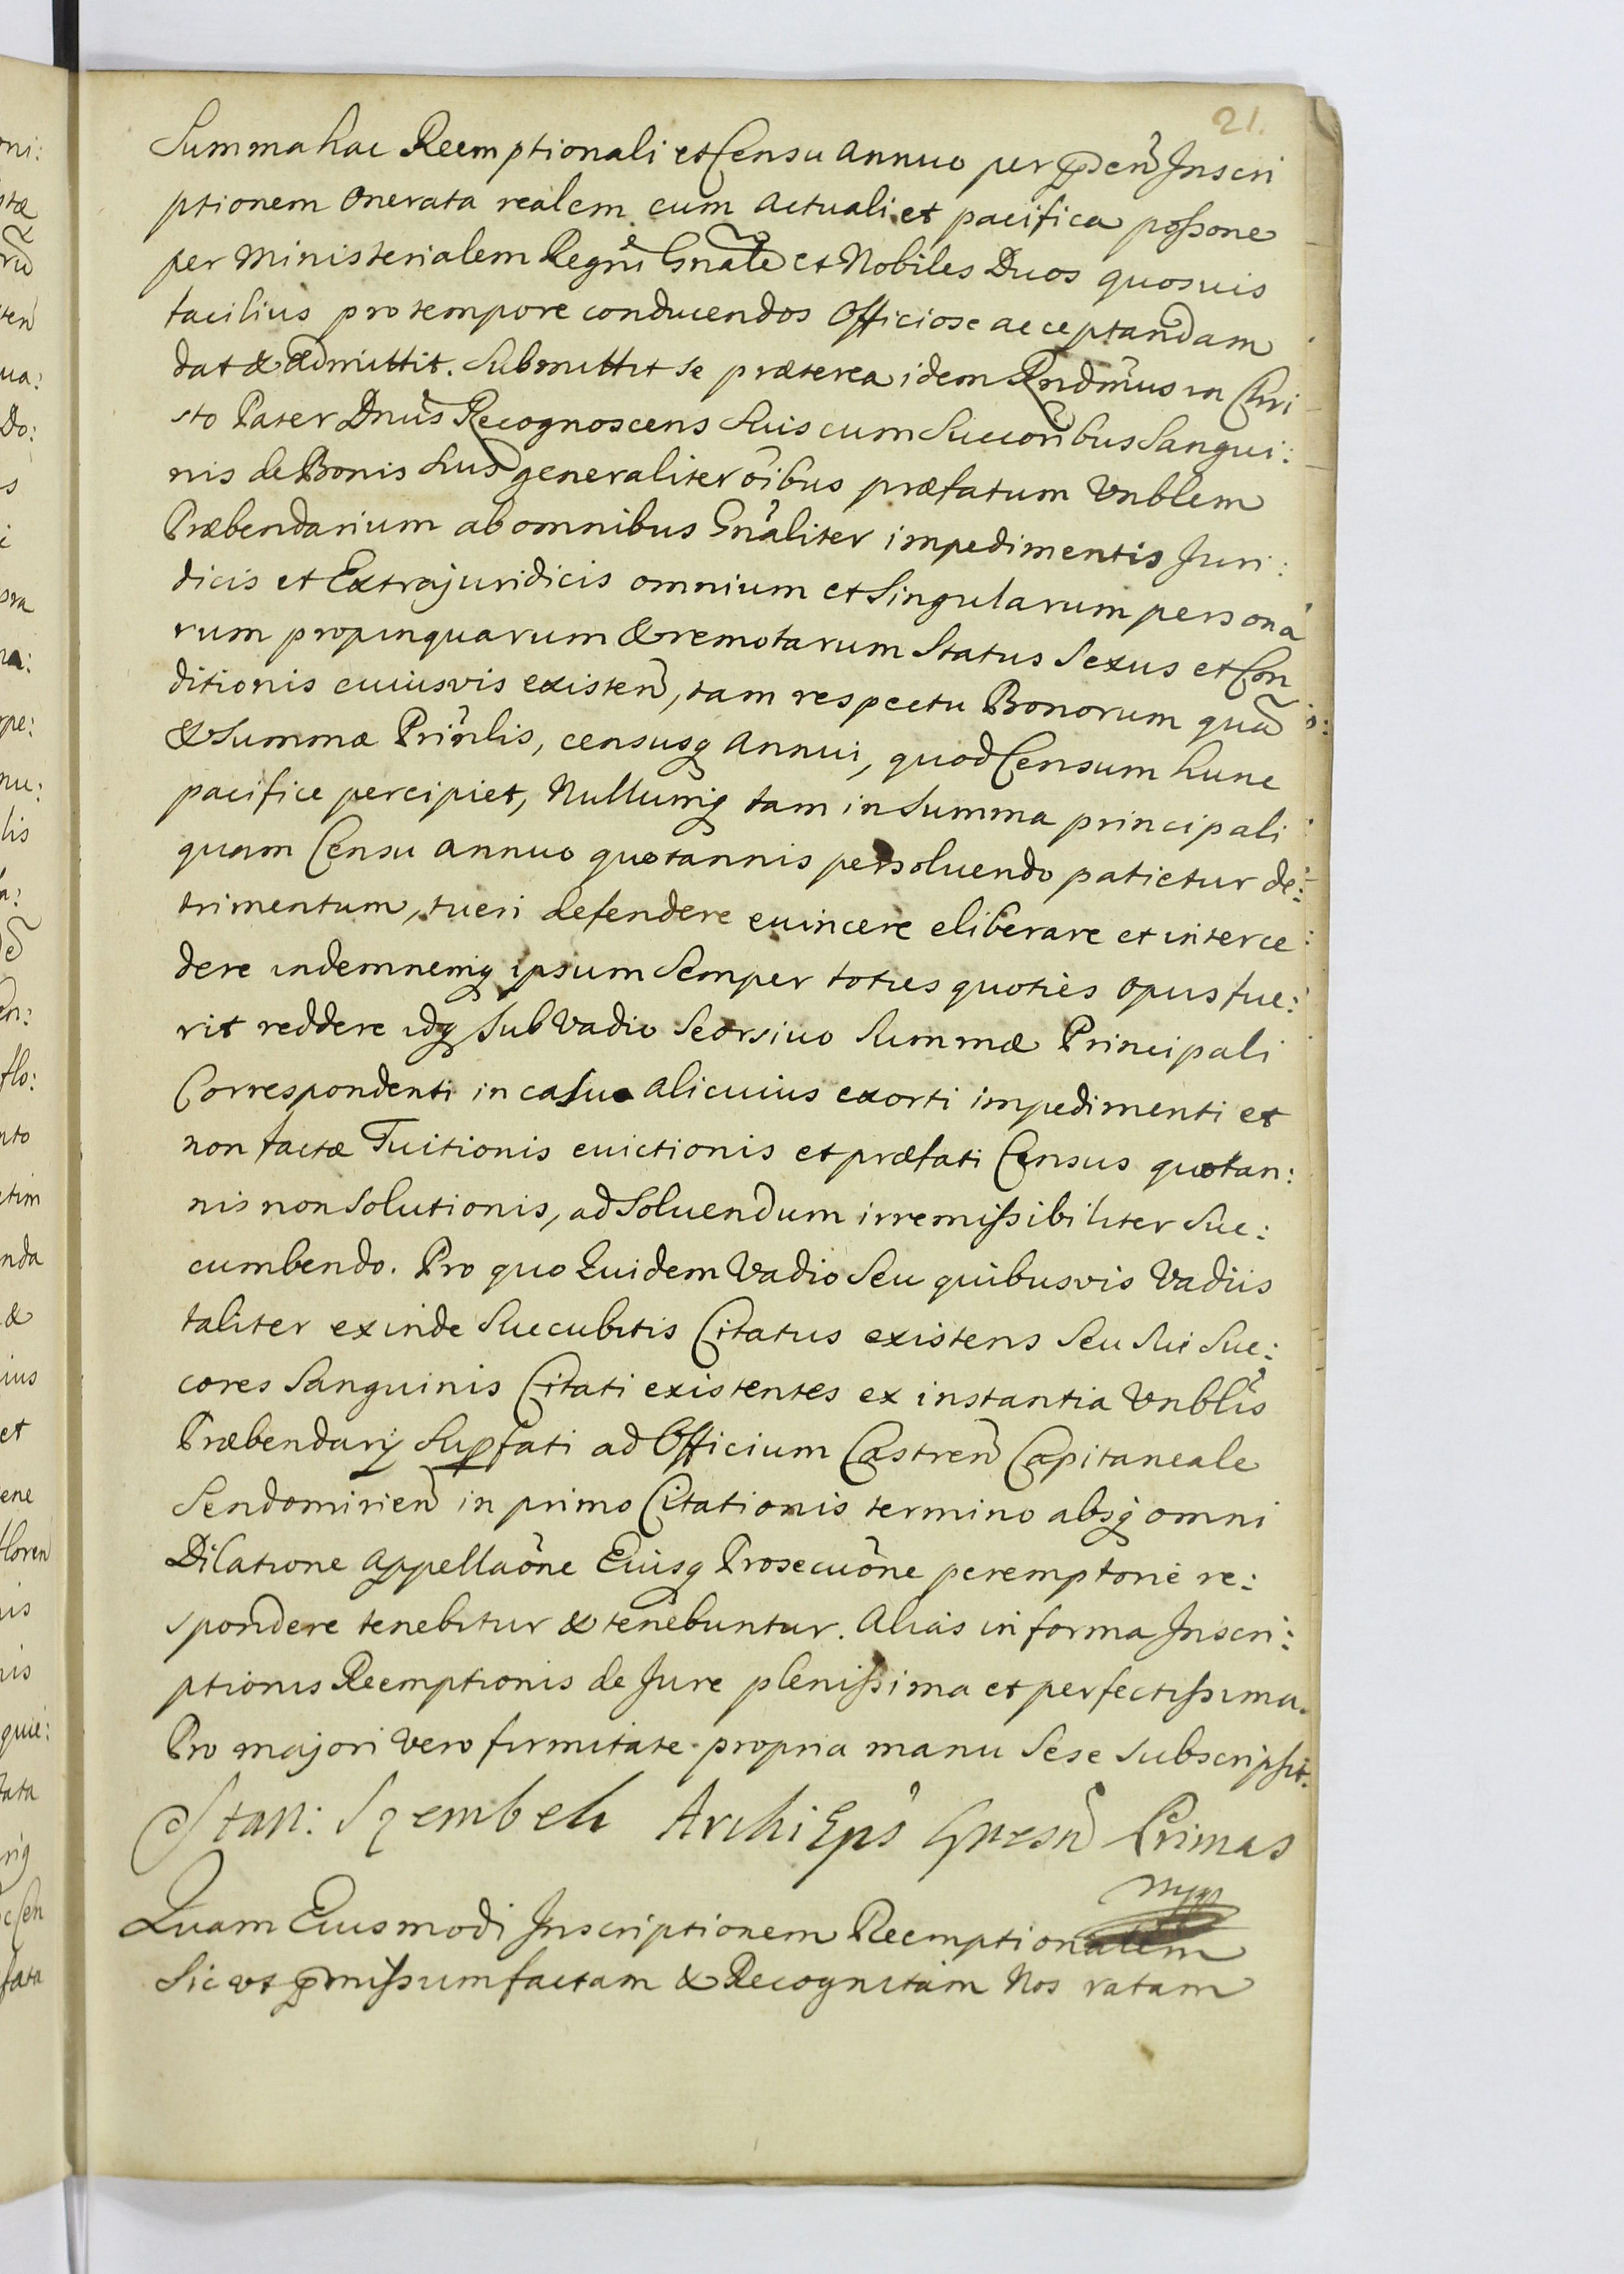 21.
Summa hac Reemptionali et Censu annuo per p̄sen̄ Inscri
ptionem onerata realem cum actuali et pacifica possone
per Ministerialem Regni Gnãle et Nobiles Duos quosuis
facilius pro tempore conducendos Officiose acceptandam
dat & admittit. Submittit se præterea idem Rndm̃us in Chri
sto Pater Dnũs Recognoscens Suis cum Succorĩbus Sangui:
nis de Bonis Suis generaliter oĩbus præfatum Vnblem
Præbendarium ab omnibus Gnãliter impedimentis Juri:
dicis et Extrajuridicis omnium et Singularum persona
rum propinquarum & remotarum Status Sexus et Con
ditionis cuiusvis existen̄, tam respectu Bonorum quã
& Summæ Prin̄lis, censusq annui, quod Censum hunc
pacifice percipiet, Nullumq tam in Summa principali
quam Censu annuo quotannis persoluendo patietur de:
trimentum, tueri defendere euincere eliberare et interce:
dere indemnemq ipsum Semper toties quoties opus fue:
rit reddere idq Sub Vadio Seorsivo Summæ Principali
Correspondenti in casu alicuius exorti impedimenti et
non factæ Tuitionis euictionis et præfati Census quotan:
nis non Solutionis, ad Soluendum irremissibiliter Suc:
cumbendo. Pro quo Quidem Vadio Seu quibusvis Vadiis
taliter exinde Succubitis Citatus existens Seu Sui Suc:
cores Sanguinis Citati existentes ex instantia Vnblĩs
Præbendarij Sup̄fati ad Officium Castren̄ Capitaneale
Sendomirien̄ in primo Citationis termino absq omni
Dilatione Appellaõne Eiusq Prosecuõne peremptorie re:
spondere tenebitur & tenebuntur. Alias in forma Inscri:
ptionis Reemptionis de Jure plenissima et perfectissima.
Pro majori vero firmitate propria manu Sese subscripsit.
Stan: Szembek ArchiEpũs Gnesn̄ Primas
mpp
Quam Eiusmodi Inscriptionem Reemptionalem
Sic ut p̄missum factam & Recognitam Nos ratam